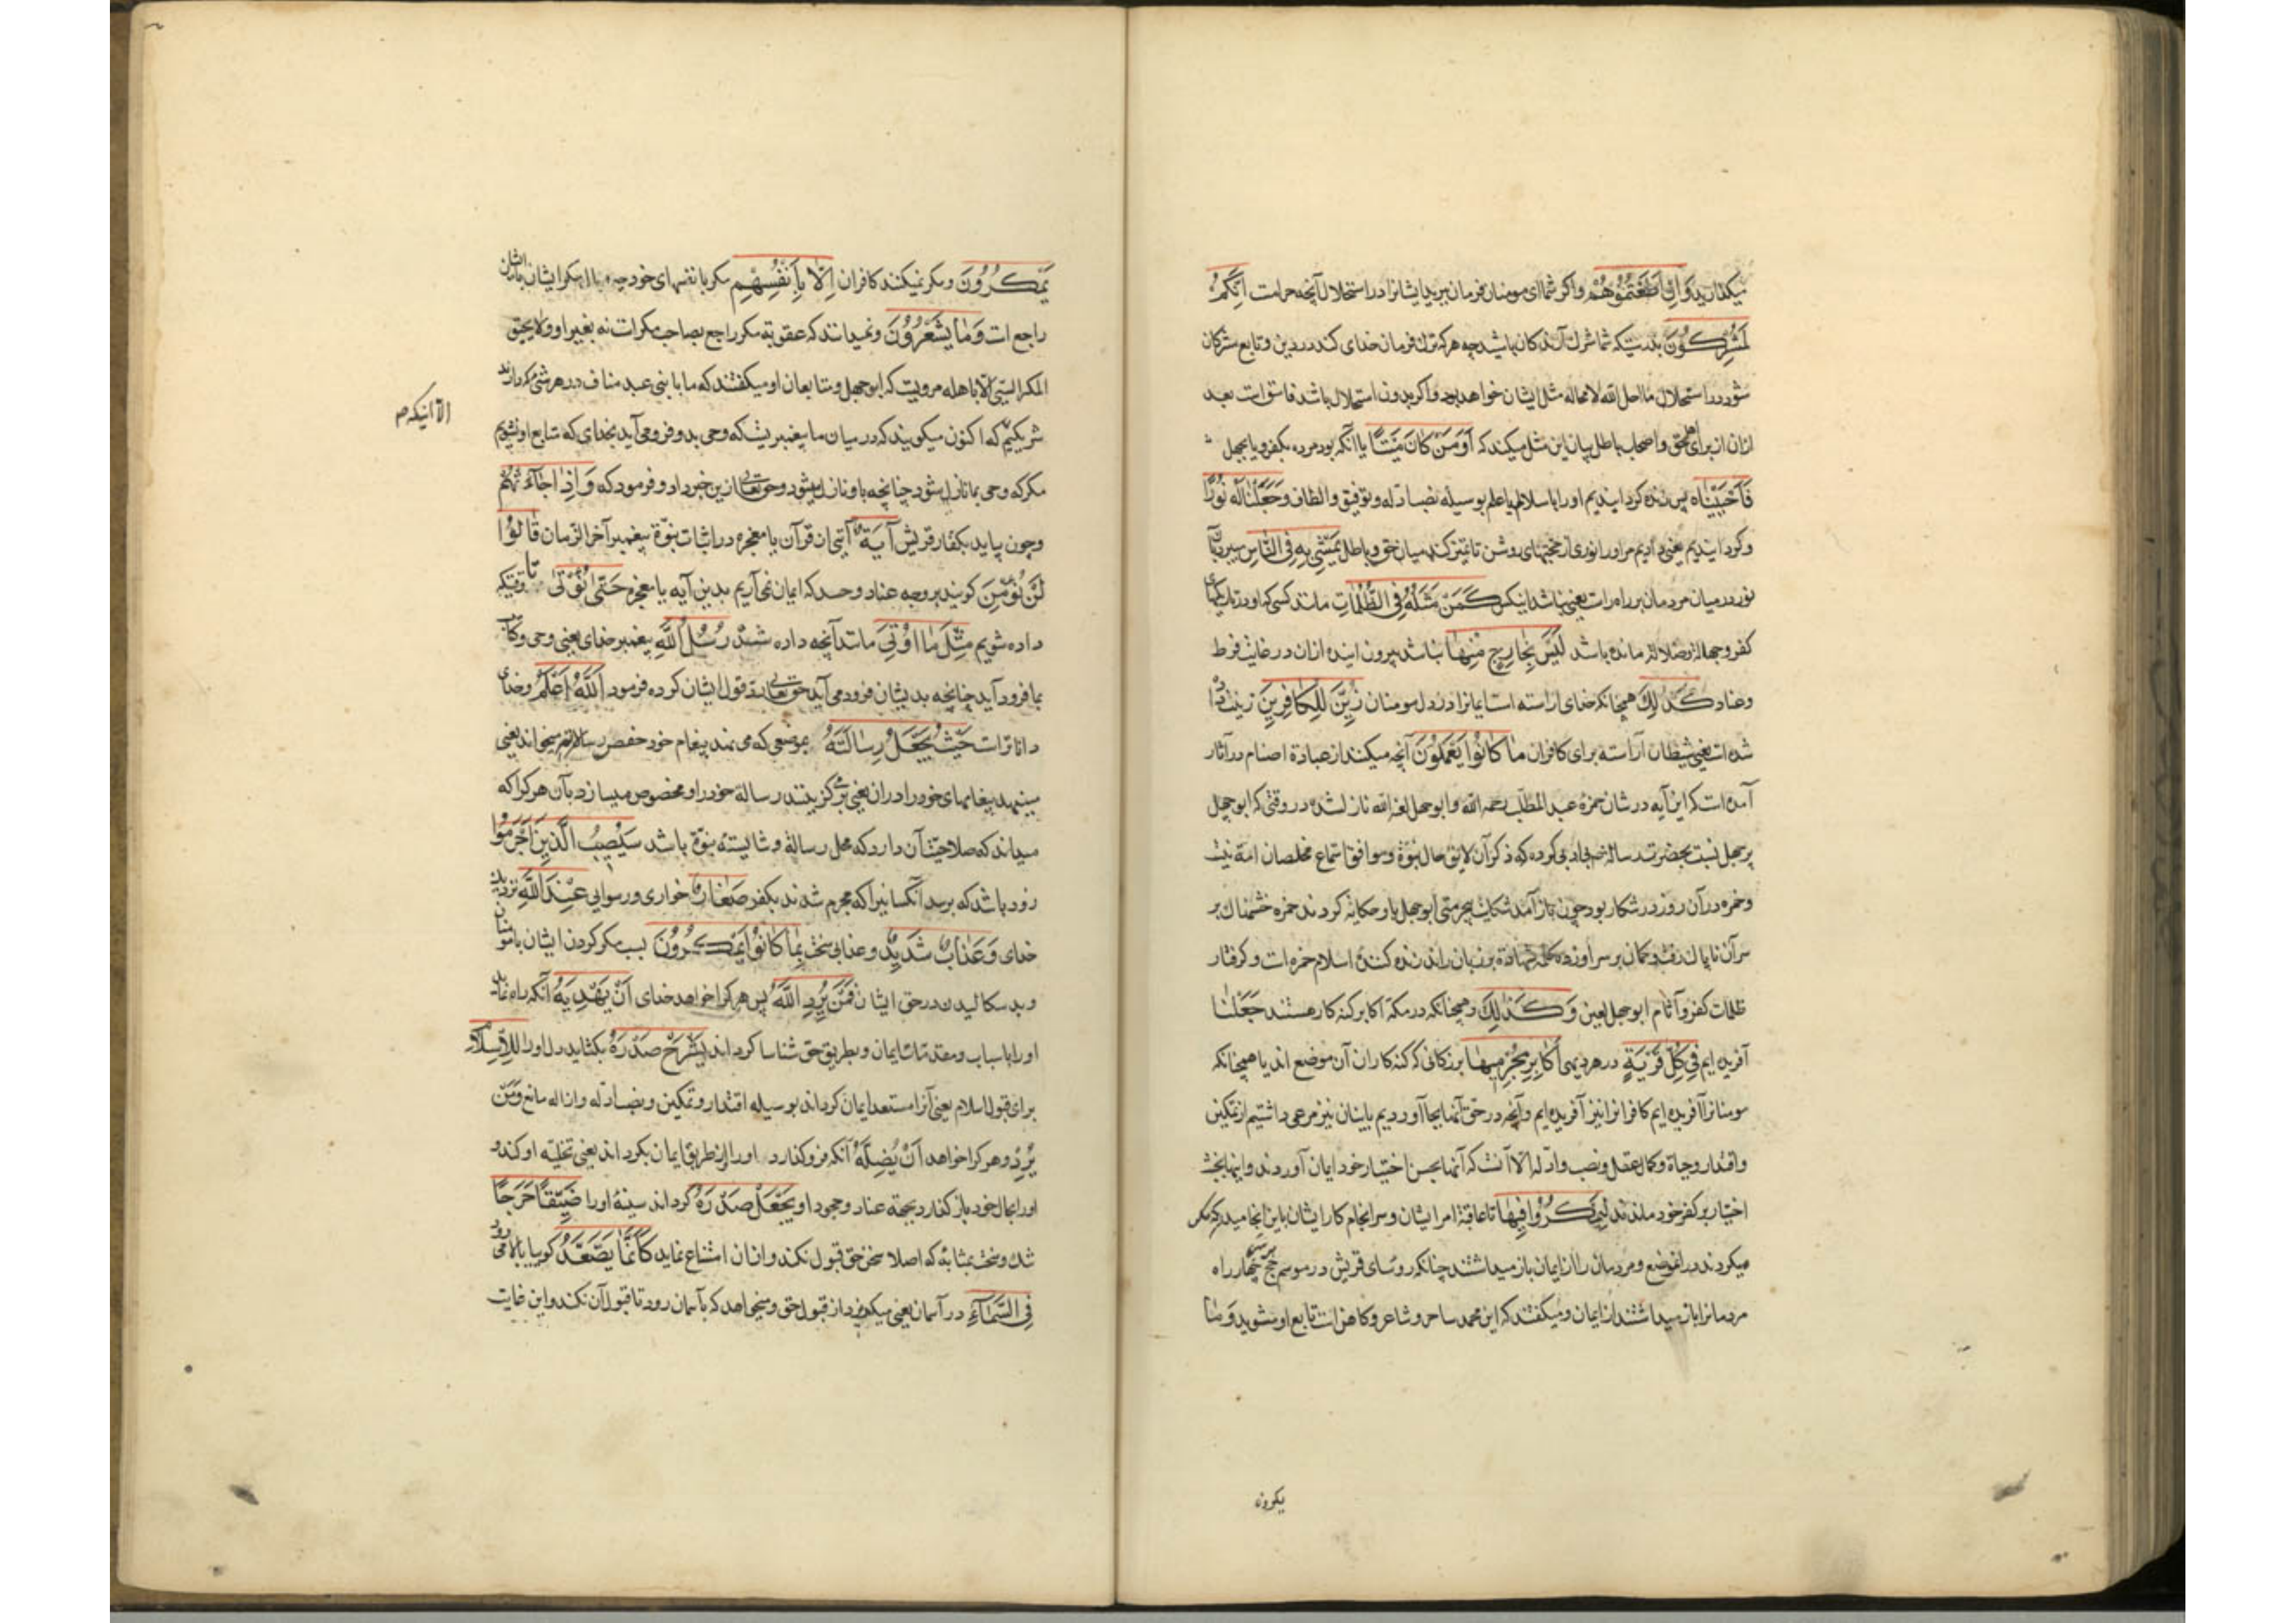 میکنند وَاِنْ اَطَعْتُمُوْهُمْ واکر شما ای مومنان فرمان برید ایشانرا در استحلال آنچه حرامست اِنَّکُمْ
لَمُشْرِکُوْنَ بدرستیکه شما شرک آرندکان باشید چه هرکه ترک فرمان خدای کند در دین و تابع مشرکان
شود در استحلال ما احل الله لامحاله مثل ایشان خواهد بود واکر بدون استحلال باشد فاسق است بعد
ازان از برای اهل حق واصحاب باطل بیان این مثل میکند که اَوَمَنْ کَانَ مَیْتًا یا آنکه بود مرده بکفر ویا بجهل
فَاَحْیَیْنَاه پس زنده کردانیدیم اورا باسلام یا علم بوسیله نصب ادله وتوفیق والطاف وَجَعَلْنَا لَهُ نُوْرًا
وکردانیدیم یعنی دادیم مر اورا نوری از حجتهای روشن تا تمیز کند میان حق وباطل یَمْشِیْ بِهِ فِی النَّاسِ
نور در میان مردمان بر راه راست یعنی باشد اینکس کَمَنْ مَثَلُهُ فِی الظُّلُمَاتِ مانند کسی که او در تاریکیهای
کفر وجهالة وضلالة مانده باشد لَیْسَ بِخَارِجٍ مِنْهَا نباشد بیرون آینده ازان در غایت فرط
وعناد کَذٰلِکَ همچنانکه خدای اراسته است ایمانرا در دل مومنان زُیِّنَ لِلْکَافِرِیْنَ زینت داده
شده است یعنی شیطان آراسته برای کافران مَا کَانُوْا یَعْمَلُوْنَ آنچه میکنند از عبادة اصنام در آثار
آمده است که این آیه در شان حمزه عبد المطلب رحمه الله وابوجهل لعنه الله نازل شده در وقتی که ابوجهل
پرجهل نسبت بحضرت رسالة بی ادبی کرده که ذکر آن لایق حال نبوة وموافق استماع مخلصان امة نیست
وحمزه در آن روز در شکار بود چون باز آمد شکایت بیحرمتی ابوجهل باو حکایة کردند حمزه خشمناک بر
سر آن ناپاک رفت وکمان بر سر او زد وکلمه شهادة بر زبان راند زنده کننده اسلام حمزه است وکرفتار
ظلمات کفر وآثام ابوجهل لعین وَکَذٰلِکَ وهمچنانکه در مکه اکابر کنه کار هستند جَعَلْنَا
آفریده ایم فِیْ کُلِّ قَرْیَةٍ در هر دیهی اَکَابِرَ مُجْرِمِیْهَا بزرکانی که کنه کاران آن موضع اند یا همچنانکه
مومنانرا آفریده ایم کافرانرا نیز آفریده ایم وآنچه در حق آنها بجا آوردیم باینان نیز مرعی داشتیم از تمکین
واقتدار وحیاة وکمال عقل ونصب ادله الا آنست که آنها بحسن اختیار خود ایمان آوردند واینها بخبث
اختیار بر کفر خود ماندند لِیَمْکُرُوْا فِیْهَا تا عاقبة امر ایشان وسرانجام کار ایشان باین انجامید که مکر
میکردند در آنموضع ومردمان را از ایمان باز میداشتند چنانکه روسای قریش در موسم حج بر سر چهار راه
مردمانرا باز میداشتند از ایمان ومیکفتند که این محمد ساحر وشاعر وکاهن است تابع او نشوید وَمَا
یمکرون
یَمْکُرُوْنَ ومکر نمیکنند کافران اِلَّا بِاَنْفُسِهِمْ مکر با نفسهای خود چه وبال مکر ایشان بایشان
راجع است وَمَا یَشْعُرُوْنَ ونمیدانند که عقوبة مکر راجع بصاحب مکر است نه بغیر او ولا یحیق
المکر السیئ الا باهله مرویست که ابوجهل ومتابعان او میکفتند که ما با بنی عبد مناف در هر شی
شریکیم که اکنون میکویند که در میان ما پیغمبریست که وحی بدو فرو می آید بخدای که تابع او نشویم
الا اینکه م
مکر که وحی بما نازل شود چنانچه باو نازل میشود وحق تعالی ازین خبر داد وفرمود که وَاِذَا جَاءَتْهُمْ
وچون بیاید بکفار قریش آیَةٌ آیتی از قرآن یا معجزه در اثبات نبوة پیغمبر آخر الزمان قَالُوْا
لَنْ نُؤْمِنَ کویند بر وجه عناد وحسد که ایمان نمی آریم بدین آیه یا معجزه حَتّٰی نُؤْتٰی تا وقتیکه
داده شویم مِثْلَ مَا اُوْتِیَ مانند آنچه داده شدند رُسُلُ اللّٰهِ پیغمبر خدای یعنی وحی وکتاب
بما فرود آید چنانچه بدیشان فرود می آید حق تعالی رد قول ایشان کرده فرمود اَللّٰهُ اَعْلَمُ وخدای
داناترست حَیْثُ یَجْعَلُ رِسَالَتَهُ بموضعی که می نهد پیغام خود یعنی
مینهد پیغامهای خود را دران یعنی بر میکزیند رسالة خود را ومخصوص میسازد بآن هرکرا که
میداند که صلاحیت آن دارد که محل رسالة وشایسته نبوة باشد سَیُصِیْبُ الَّذِیْنَ اَجْرَمُوْا
زود باشد که برسد آنکسانیرا که مجرم شدند بکفر صَغَارٌ خواری ورسوایی عِنْدَ اللّٰهِ نزدیک
خدای وَعَذَابٌ شَدِیْدٌ وعذابی سخت بِمَا کَانُوْا یَمْکُرُوْنَ بسبب مکر کردن ایشان با مومنان
وبد سکالیدن در حق ایشان فَمَنْ یُرِدِ اللّٰهُ پس هرکرا خواهد خدای اَنْ یَهْدِیَهُ آنکه راه نماید
اورا باسباب ومقدمات ایمان وبطریق حق شناسا کرداند یَشْرَحْ صَدْرَهُ بکشاید دل اورا لِلْاِسْلَامِ
برای قبول اسلام یعنی آنرا مستعد ایمان کرداند بوسیله اقتدار وتمکین ونصب ادله وازاله مانع وَمَنْ
یُرِدْ وهرکرا خواهد اَنْ یُضِلَّهُ آنکه فرو کذارد اورا از طریق ایمان بکرداند یعنی تخلیه او کند و
اورا بحال خود باز کذارد بجهة عناد وجحود او یَجْعَلْ صَدْرَهُ کرداند سینه اورا ضَیِّقًا حَرَجًا
تنک وسخت بمثابه که اصلا سخن حق قبول نکند وازان امتناع نماید کَاَنَّمَا یَصَّعَّدُ کوییا بالا می رود
فِی السَّمَاءِ در آسمان یعنی میکریزد از قبول حق ومیخواهد که بآسمان رود تا قبول آن نکند واین غایت